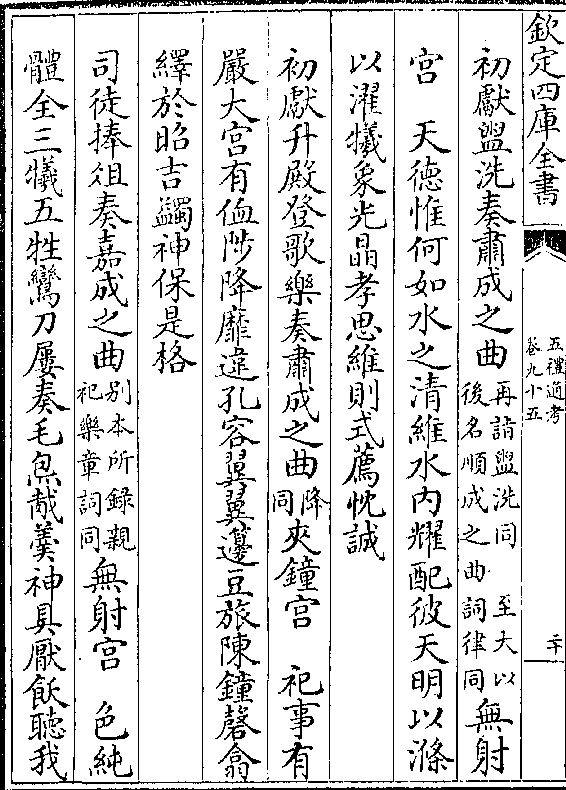 欽定四庫全書
五禮通考
卷九十五
二十
初獻盥洗奏肅成之曲再詣盥洗同 至大以後名順成之曲 詞律同無射
宮 天德惟何如水之清維水内耀配彼天明以滌
以濯犧象光晶孝思維則式薦忱誠
初獻升殿登歌樂奏肅成之曲降同夾鐘宮 祀事有
嚴大宮有侐陟降靡違孔容翼翼籩豆旅陳鐘磬翕
繹於昭吉蠲神保是格
司徒捧俎奏嘉成之曲别本所録親祀樂章詞同無射宮 色純
體全三犧五牲鸞刀屢奏毛炰胾羹神具厭飫聽我